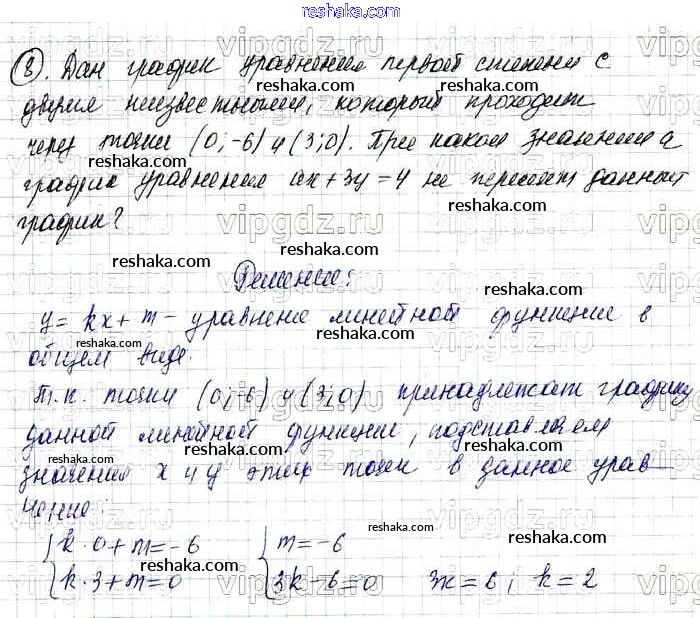 reshaka.com
⑧. Дан график уравнения первой степени с
двумя неизвестными, который проходит
через точки (0;-6) и (3;0). При каком значении a
график уравнения ax+3y=4 не пересечет данный
график?
Решение:
y=kx+m - уравнение линейной функции в
общем виде.
Т.к. точки (0;-6) и (3;0) принадлежат графику
данной линейной функции, подставляем
значения x и y этих точек в данное урав-
нение:
{k·0+m=-6 {m=-6
{k·3+m=0 {3k-6=0 3k=6; k=2